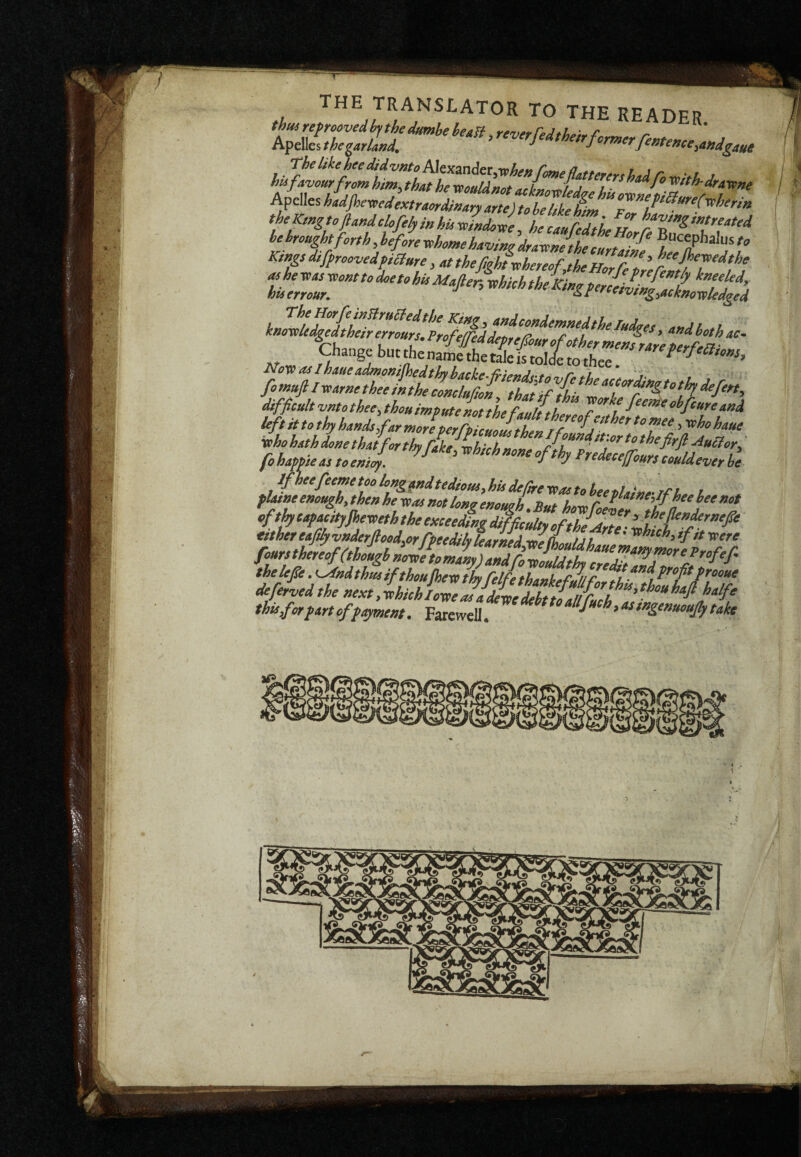 THE TRANSLATOR TO THE READER.
thus reprooved by the dumbe beast, reversed their former sentence, and gaue
Apelles the garland.
The like hee did vnto Alexander, when some flatterers had so with-drawne
his favour from him, that he would not acknowledge his owne picture (wherin
Apelles had shewed extraordinary arte) to be like him. For having intreated
the King to stand closely in his windowe, he caused the Horse Bucephalus to
be brought forth, before whome having drawne the curtaine, hee shewed the
Kings disprooved picture, at the sight whereof, the Horse presently kneeled,
as he was wont to doe to his Master; which the King perceiving, acknowledged
his errour.
The Horse instructed the King, and condemned the Iudges, and both ac-
knowledged their errours. Professed depresseour of other mens rare perfections,
Change but the name the tale is tolde to thee.
Now as I haue admonished thy backe-friends; to vse the according to thy desert,
so must I warne thee in the conclusion, that if this worke seeme obscure and
difficult vnto thee, thou impute not the fault thereof either to mee, who haue
left it to thy hands, far more perspicuous then I found it: or to the first Auctor,
who hath done that for thy sake, which none of thy Predecessours could ever be
so happie as to enioy.
If hee seeme too long and tedious, his desire was to bee plaine; If hee bee not
plaine enough, then he was not long enough. But howsoever, the slendernesse
of thy capacity sheweth the exceeding difficulty of the Arte: which, if it were
either easily vnderstood, or speedily learned, we should haue many more Profes-
sours thereof (though nowe to many) and so would thy credit and profit prooue
the lesse. And thus if thou shew thy selfe thankefull for this, thou hast halfe
deserved the next, which I owe as a dewe debt to all such, as ingenuously take
this, for part of payment. Farewell.